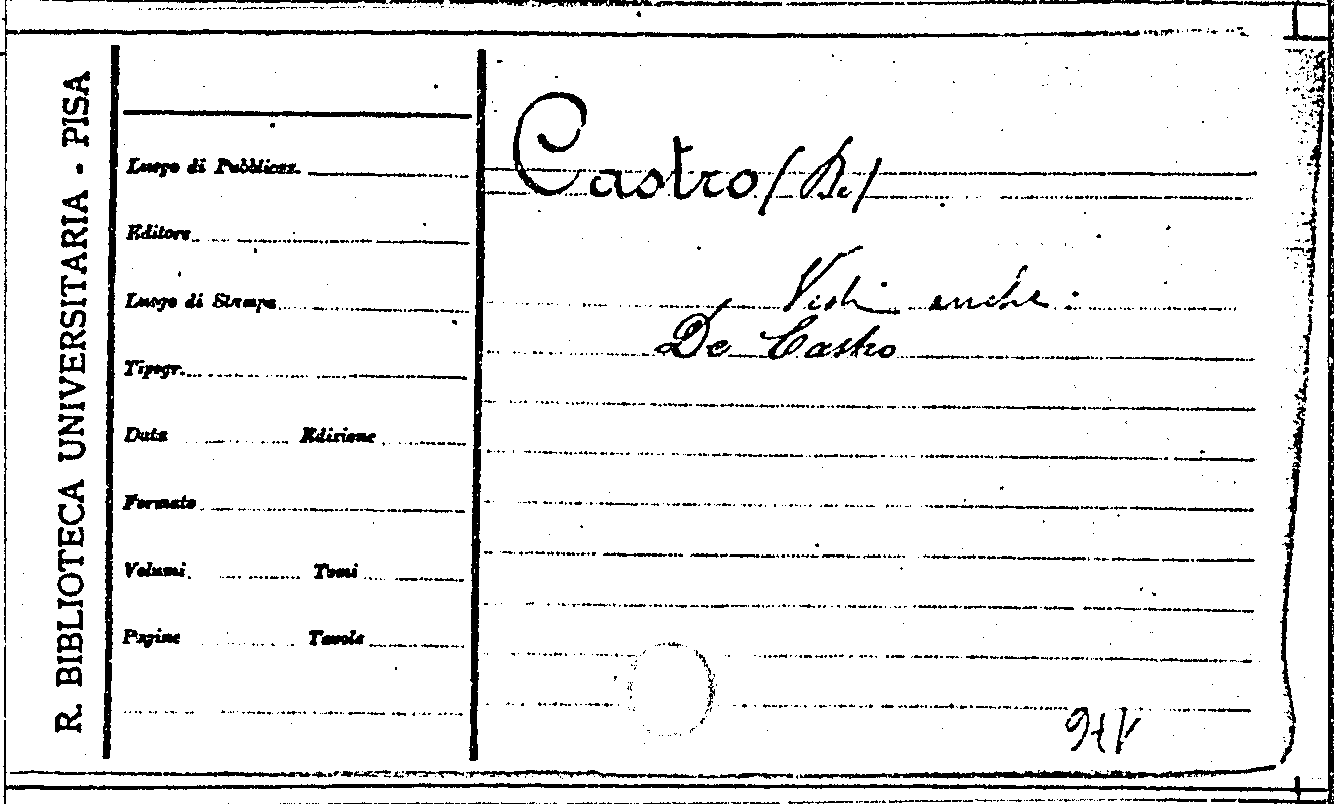 R. BIBLIOTECA UNIVERSITARIA - PISA
Luogo di Pubblicaz.
Editore
Luogo di Stampa
Tipogr.
Data Edizione
Formato
Volumi Tomi
Pagine Tavole
Castro (De)
Vedi anche:
De Castro